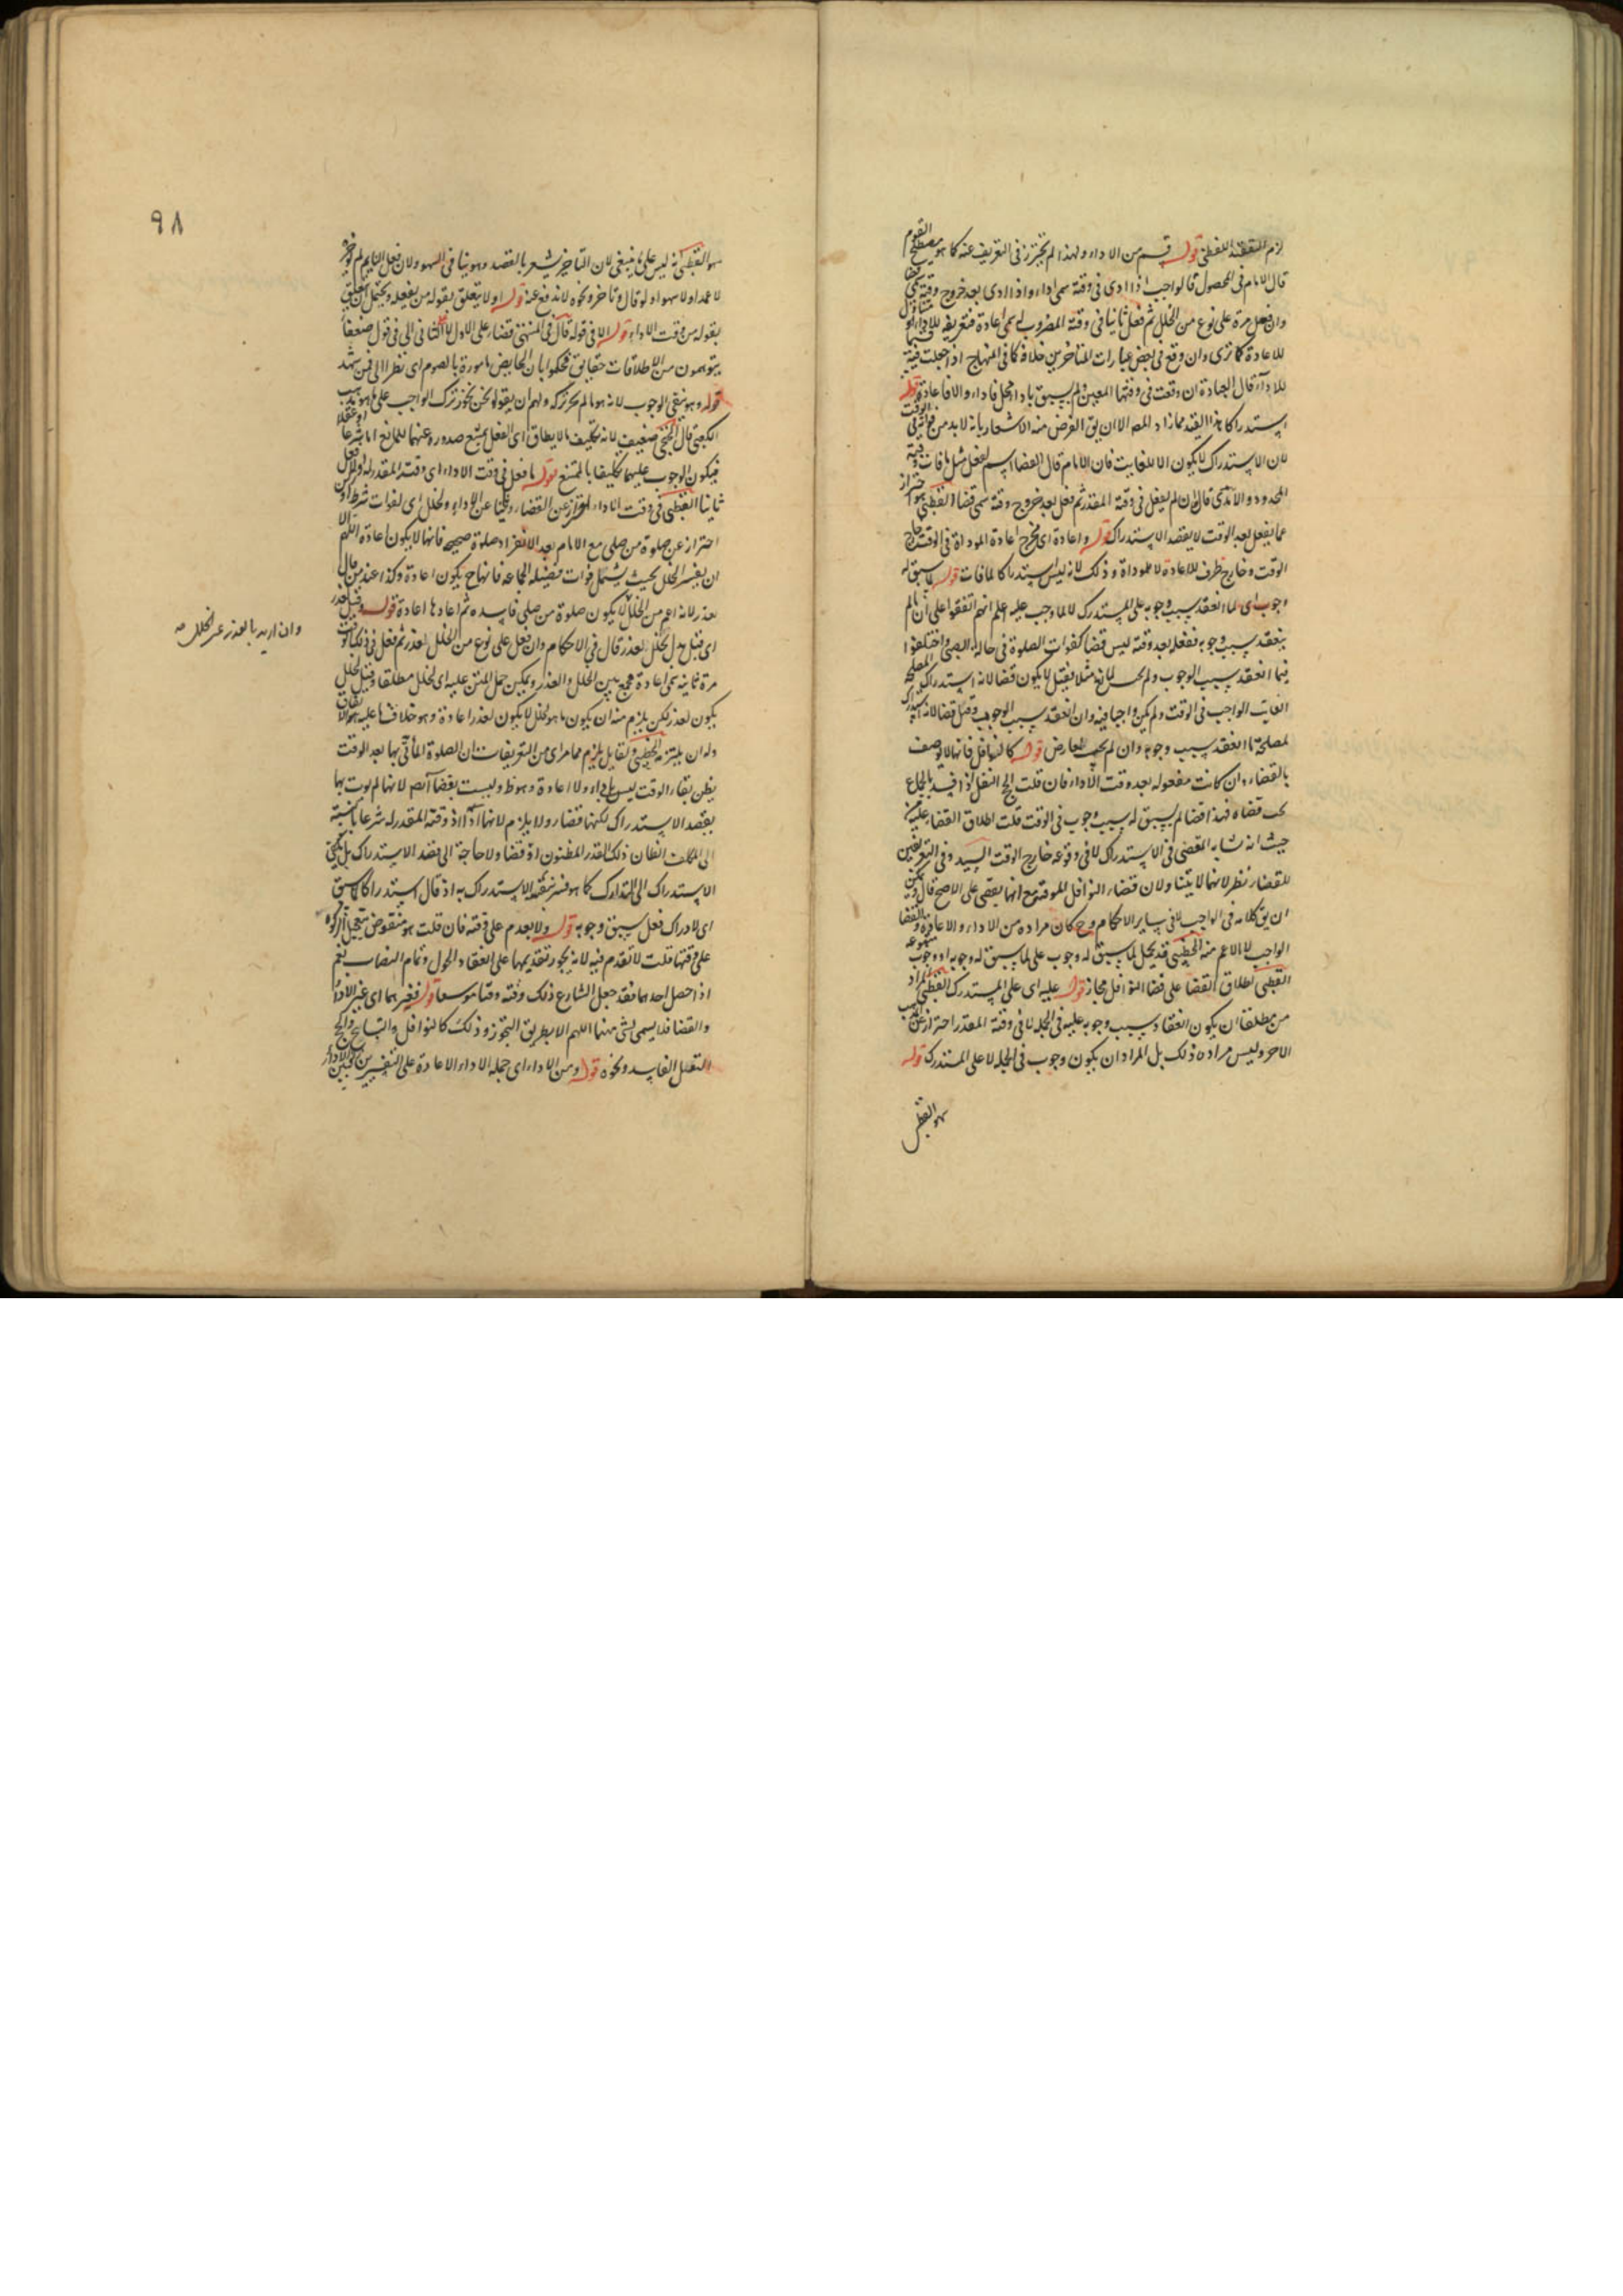 قوله قسم من الاداء ولهذا لم تحترز فى التعريف عنه كما هو مصطلح القوم
قال الامام فى المحصول قالواجب اذا ادى فى وقته سمى اداء واذا ادى بعد خروج وقته
وان فعل مرة على نوع من الخلل ثم فعل ثانيا فى وقته المضروب له سمى اعادة فتعريفه للاداء
للاعادة كما ترى وان وقع فى بعض عبارات المتاخرين خلافه كما فى المنهاج اذ جعلت
للاداء قال العبادة ان وقعت فى وقتها المعين ولم يسبق باداء مختل فاداء والا فاعادة قوله
استدراكا هذا القيد مما زاد المص الا ان يق الغرض منه الاشعار بانه لا بد من
لان الاستدراك لا يكون الا للفايت فان الامام قال القضا اسم لفعل مثل ما فات
المحدود والامدى قال ان لم يفعل فى وقته المقدر ثم فعل بعد خروج وقته سمى قضا القطبى هو احتراز
عما يفعل بعد الوقت لا بقصد الاستدراك قوله واعادة اى مخرج اعادة الموداة فى الوقت خارج
الوقت وخارج ظرف للاعادة لا للموداة وذلك لانه ليس استدراكا لما فات قوله لما سبق له
وجوب اى لما انعقد سبب وجوبه على المستدرك لا لما وجب عليه اعلم انهم اتفقوا على ان ما لم
ينعقد سبب وجوبه ففعله بعد وقته ليس قضا كفوات الصلوة فى حالة الصبى واختلفوا
فيما انعقد سبب الوجوب ولم لمانع مثلا فقيل لا يكون قضا لانه استدراك لمصلحة
الفايت الواجب فى الوقت ولم يكن واجبا فيه وان انعقد سبب الوجوب وقيل قضا لانه استدراك
لمصلحة ما انعقد سبب وجوبه وان لم يجب لعارض قوله كالنوافل فانها لا توصف
بالقضاء وان كانت مفعوله بعد وقت الاداء فان قلت الحج النفل اذا فسد بالجماع
يجب قضاه فهذا قضا لم يسبق له سبب وجوب فى الوقت قلت اطلاق القضاء عليه من
حيث انه شابه المقضى فى الاستدراك لا فى وقوعه خارج الوقت السيد وفى التعريفين
للقضاء نظر لانهما لا يتناولان قضاء النوافل الموقتة مع انها يقضى على الاصح قال ويمكن
ان يق كلامه فى الواجب لا فى ساير الاحكام وح كان مراده من الاداء والاعادة والقضا
الواجب لا الاعم منه الخطيبى قد يحمل لما سبق له وجوب على لما سبق له وجوبه او وجوب
القطبى اطلاق القضا على قضا النوافل مجاز قوله عليه اى على المستدرك القطبى المراد
من مطلقا ان يكون انعقاد سبب وجوبه عليه فى الجملة لا فى وقته المقدر احترازا عن
الاخر وليس مراده ذلك بل المراد ان يكون وجوب فى الجمله لا على المستدرك قوله
سهوا القطبى
٩٨
سهوا القطبى انه ليس على ما ينبغى لان التاخير يشعر بالقصد وهو ينافى السهو ولان فعل النايم لم يؤخر
لا عمدا ولا سهوا ولو قال وتاخر ونحوه لاندفع عنه قوله اولا يتعلق بقوله من يفعله ويحتمل ان يتعلق
بقوله من وقت الاداء قوله الا فى قوله قال فى المنتهى قضاء على الاول لا الثانى الى فى قول ضعفا
يتوهمون من الاطلاقات حقايق فحكموا بان الحايض مامورة بالصوم اى نظرا الى فمن شهد
قوله وهو نفى الوجوب لانه هو ما لم يجز تركه ولهم ان يقولوا نحن نجوز ترك الواجب على ما هو مذهب
الكعبى قال الخنجى ضعيف لانه تكليف ما لا يطاق اى الفعل يمتنع صدوره عنهما للمانع اما شرعا او عقلا
فيكون الوجوب عليهما تكليفا بالممتنع قوله ما فعل فى وقت الاداء اى وقته المقدر له
ثانيا القطبى فى وقت الاداء احتراز عن القضاء وثانيا عن الاداء ولخلل اى لفوات شرط او ركن
احتراز عن صلوة من صلى مع الامام بعد الانفراد صلوة صحيحه فانها لا يكون اعادة اللهم الا
ان يفسر الخلل بحيث يشمل فوات فضيلة الجماعه فانها ح يكون اعادة وكذا عند من قال
لعذر لانه اعم من الخلل لا يكون صلوة من صلى فاسده ثم اعادها اعادة قوله وقيل لعذر
اى قيل بدل لخلل لعذر قال فى الاحكام وان فعل على نوع من الخلل لعذر ثم فعل فى ذلك الوقت
مرة ثانيه سمى اعادة فجمع بين الخلل والعذر ويمكن حمل المتن عليه اى لخلل مطلقا وقيل لخلل
يكون لعذر لكن يلزم منه ان يكون ما هو لخلل لا يكون لعذر اعادة وهو خلاف ما عليه
وله ان يلتزمه الخطيبى ولقايل يلزم مما مر اى من التعريفات ان الصلوة الماتى بها بعد الوقت
يظن بقاء الوقت ليس باداء ولا اعادة وهو ظ وليست بقضا ايضا لانها لم يوت بها
بقصد الاستدراك لكنها قضاء ولا يلزم لانها اداء اذ وقته المقدر له شرعا بالنسبة
الى المكلف الظان ذلك القدر المظنون او قضا ولا حاجة الى قصد الاستدراك بل يكفى
الاستدراك كما هو فسر بنفيه الاستدراك به اذ قال استدراكا لما سبق
اى لادراك فعل سبق وجوبه قوله ولا يقدم على وقته فان قلت هو منقوض بتعجيل الزكوة
على وقتها قلت لا تقدم فيه لانه يجوز تقديمها على انعقاد الحول وتمام النصاب نعم
اذا حصل احدهما فقد جعل الشارع ذلك وقته وقتا موسعا قوله فغيرهما اى غير الاداء
والقضا فلا يسمى بشى منهما اللهم الا بطريق التجوز وذلك كالنوافل والتسابيح والحج
النفل الفاسد ونحوه قوله ومن الاداء اى جمله الاداء الاعادة على التفسيرين
وان اريد بالعذر غير الخلل صح